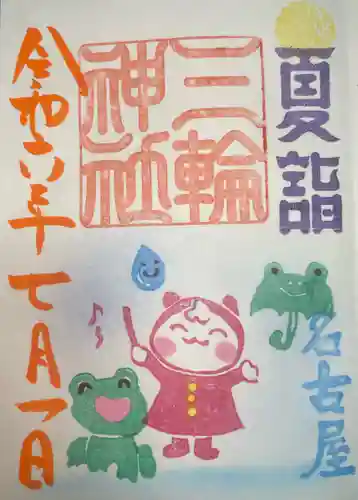 夏詣
三輪
神社
名古屋
令和六年
七月一日